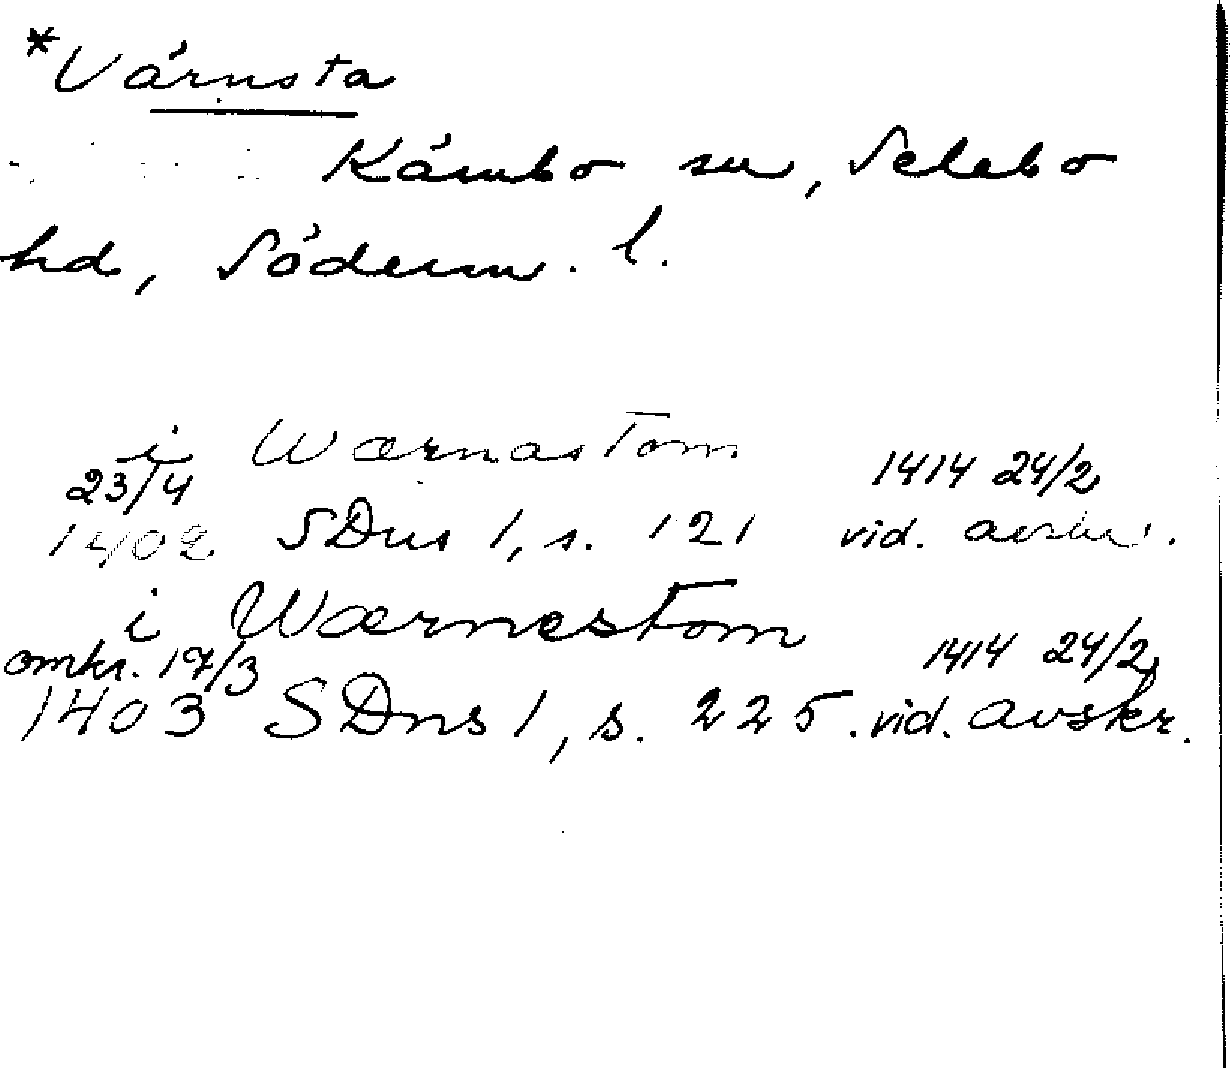 *Värnsta
Kärnbo sn, Selebo
hd, Söderm. l.
i Wærnastom
23/4 1414 24/2
1402 SDns 1, s. 121 vid. avskr.
i Wærnestom
omkr. 17/3 1414 24/2
1403 SDns 1, s. 225. vid. avskr.